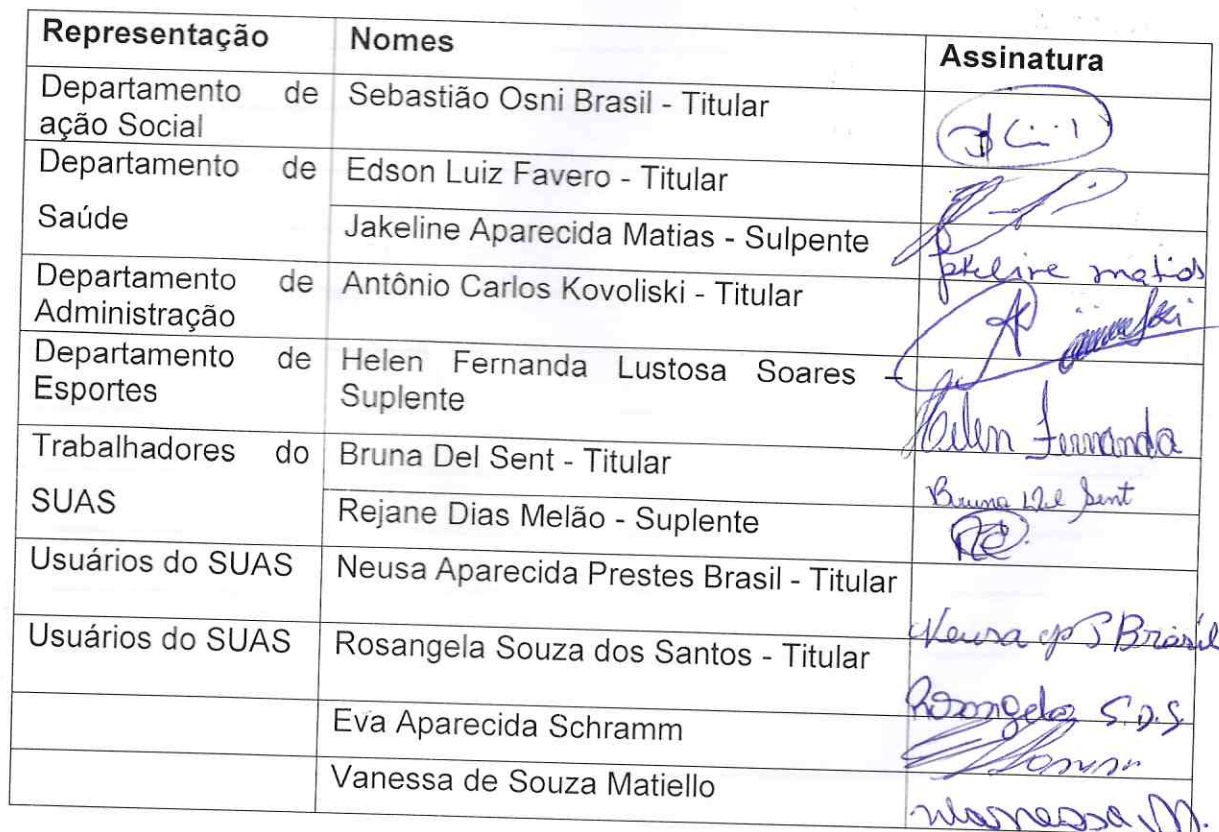 Representação Nomes Assinatura
Departamento de Sebastião Osni Brasil - Titular
ação Social
Departamento de Edson Luiz Favero - Titular
Saúde
Jakeline Aparecida Matias - Sulpente
Jakeline Matias
Departamento de Antônio Carlos Kovoliski - Titular
Administração
Departamento de Helen Fernanda Lustosa Soares –
Esportes Suplente
Helen Fernanda
Trabalhadores do Bruna Del Sent - Titular
Bruna Del Sent
SUAS Rejane Dias Melão - Suplente
Usuários do SUAS Neusa Aparecida Prestes Brasil - Titular
Neusa ap P Brasil
Usuários do SUAS Rosangela Souza dos Santos - Titular
Rosangela S.D.S
Eva Aparecida Schramm
Vanessa de Souza Matiello
Vanessa M.